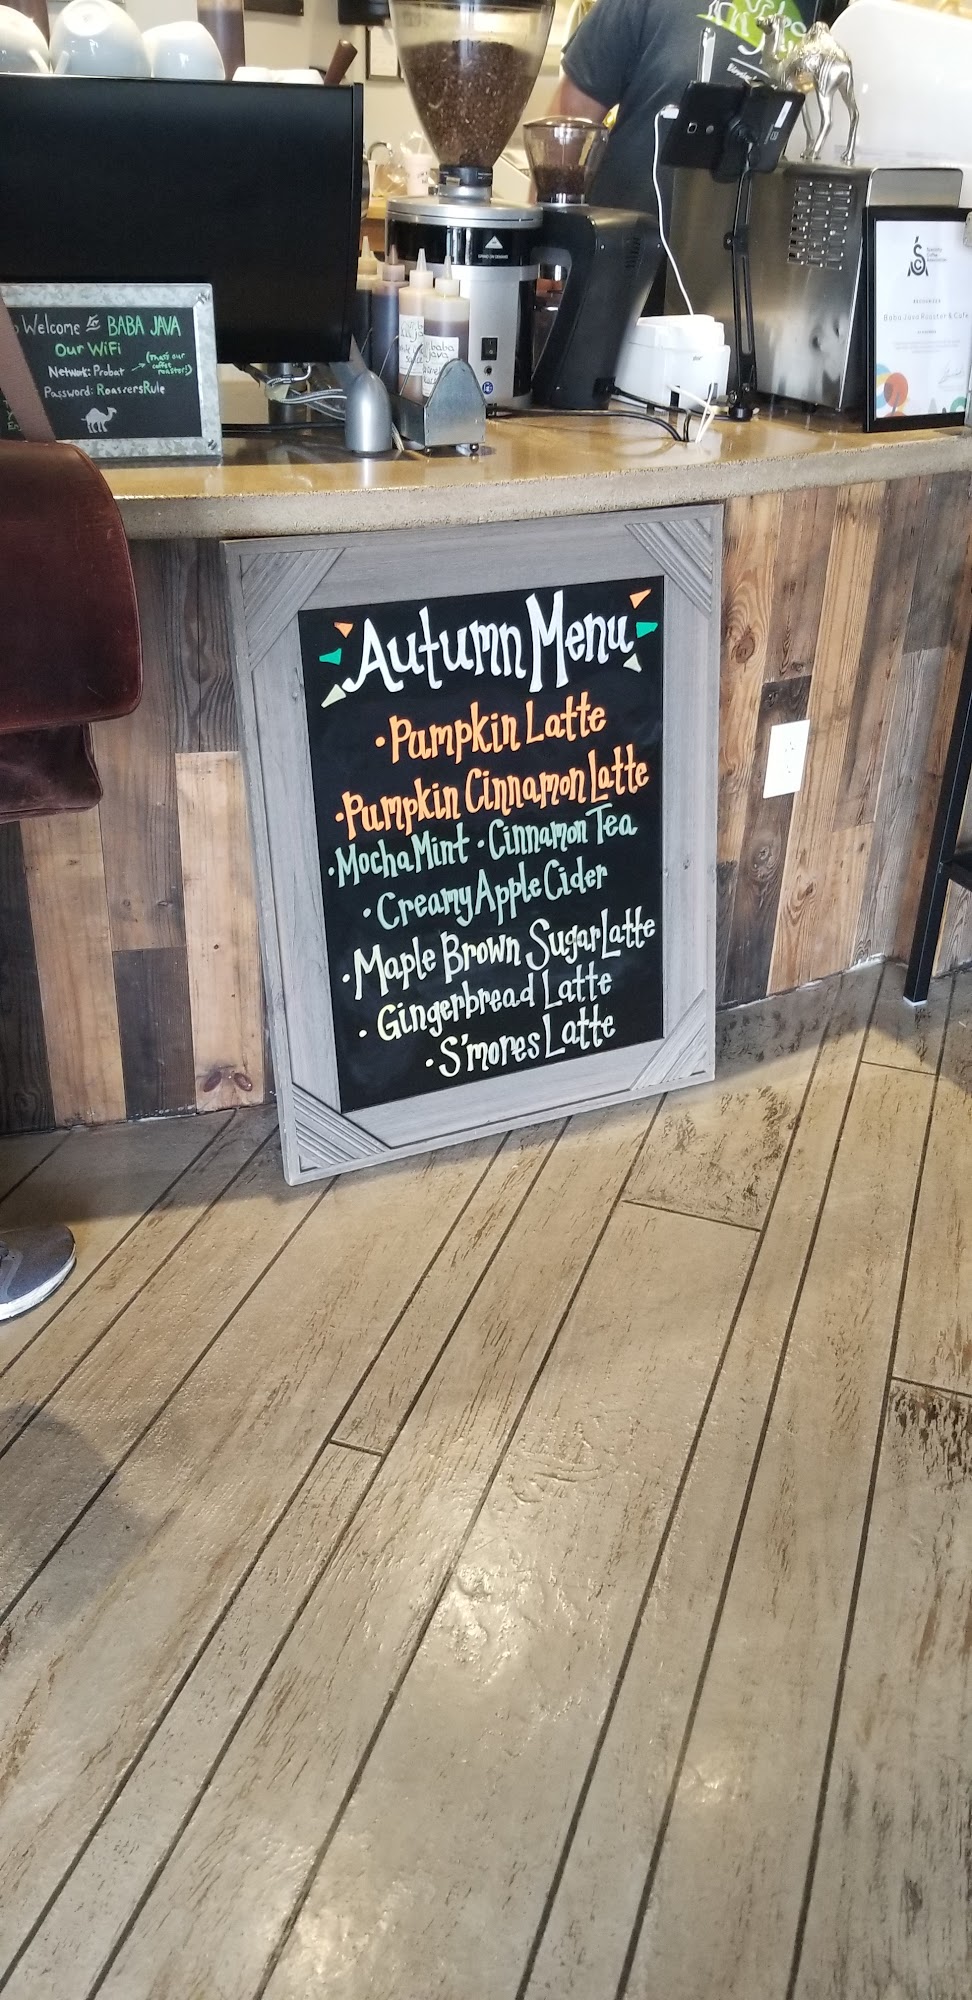 Welcome to BABA JAVA
Our WiFi
Network: Probat
(that's our
coffee
roaster!)
Password: RoastersRule
baba
java
Specialty
Coffee
Association
RECOGNIZES
Baba Java Roaster & Cafe
Autumn Menu
• Pumpkin Latte
• Pumpkin Cinnamon Latte
• Mocha Mint • Cinnamon Tea
• Creamy Apple Cider
• Maple Brown Sugar Latte
• Gingerbread Latte
• S'mores Latte